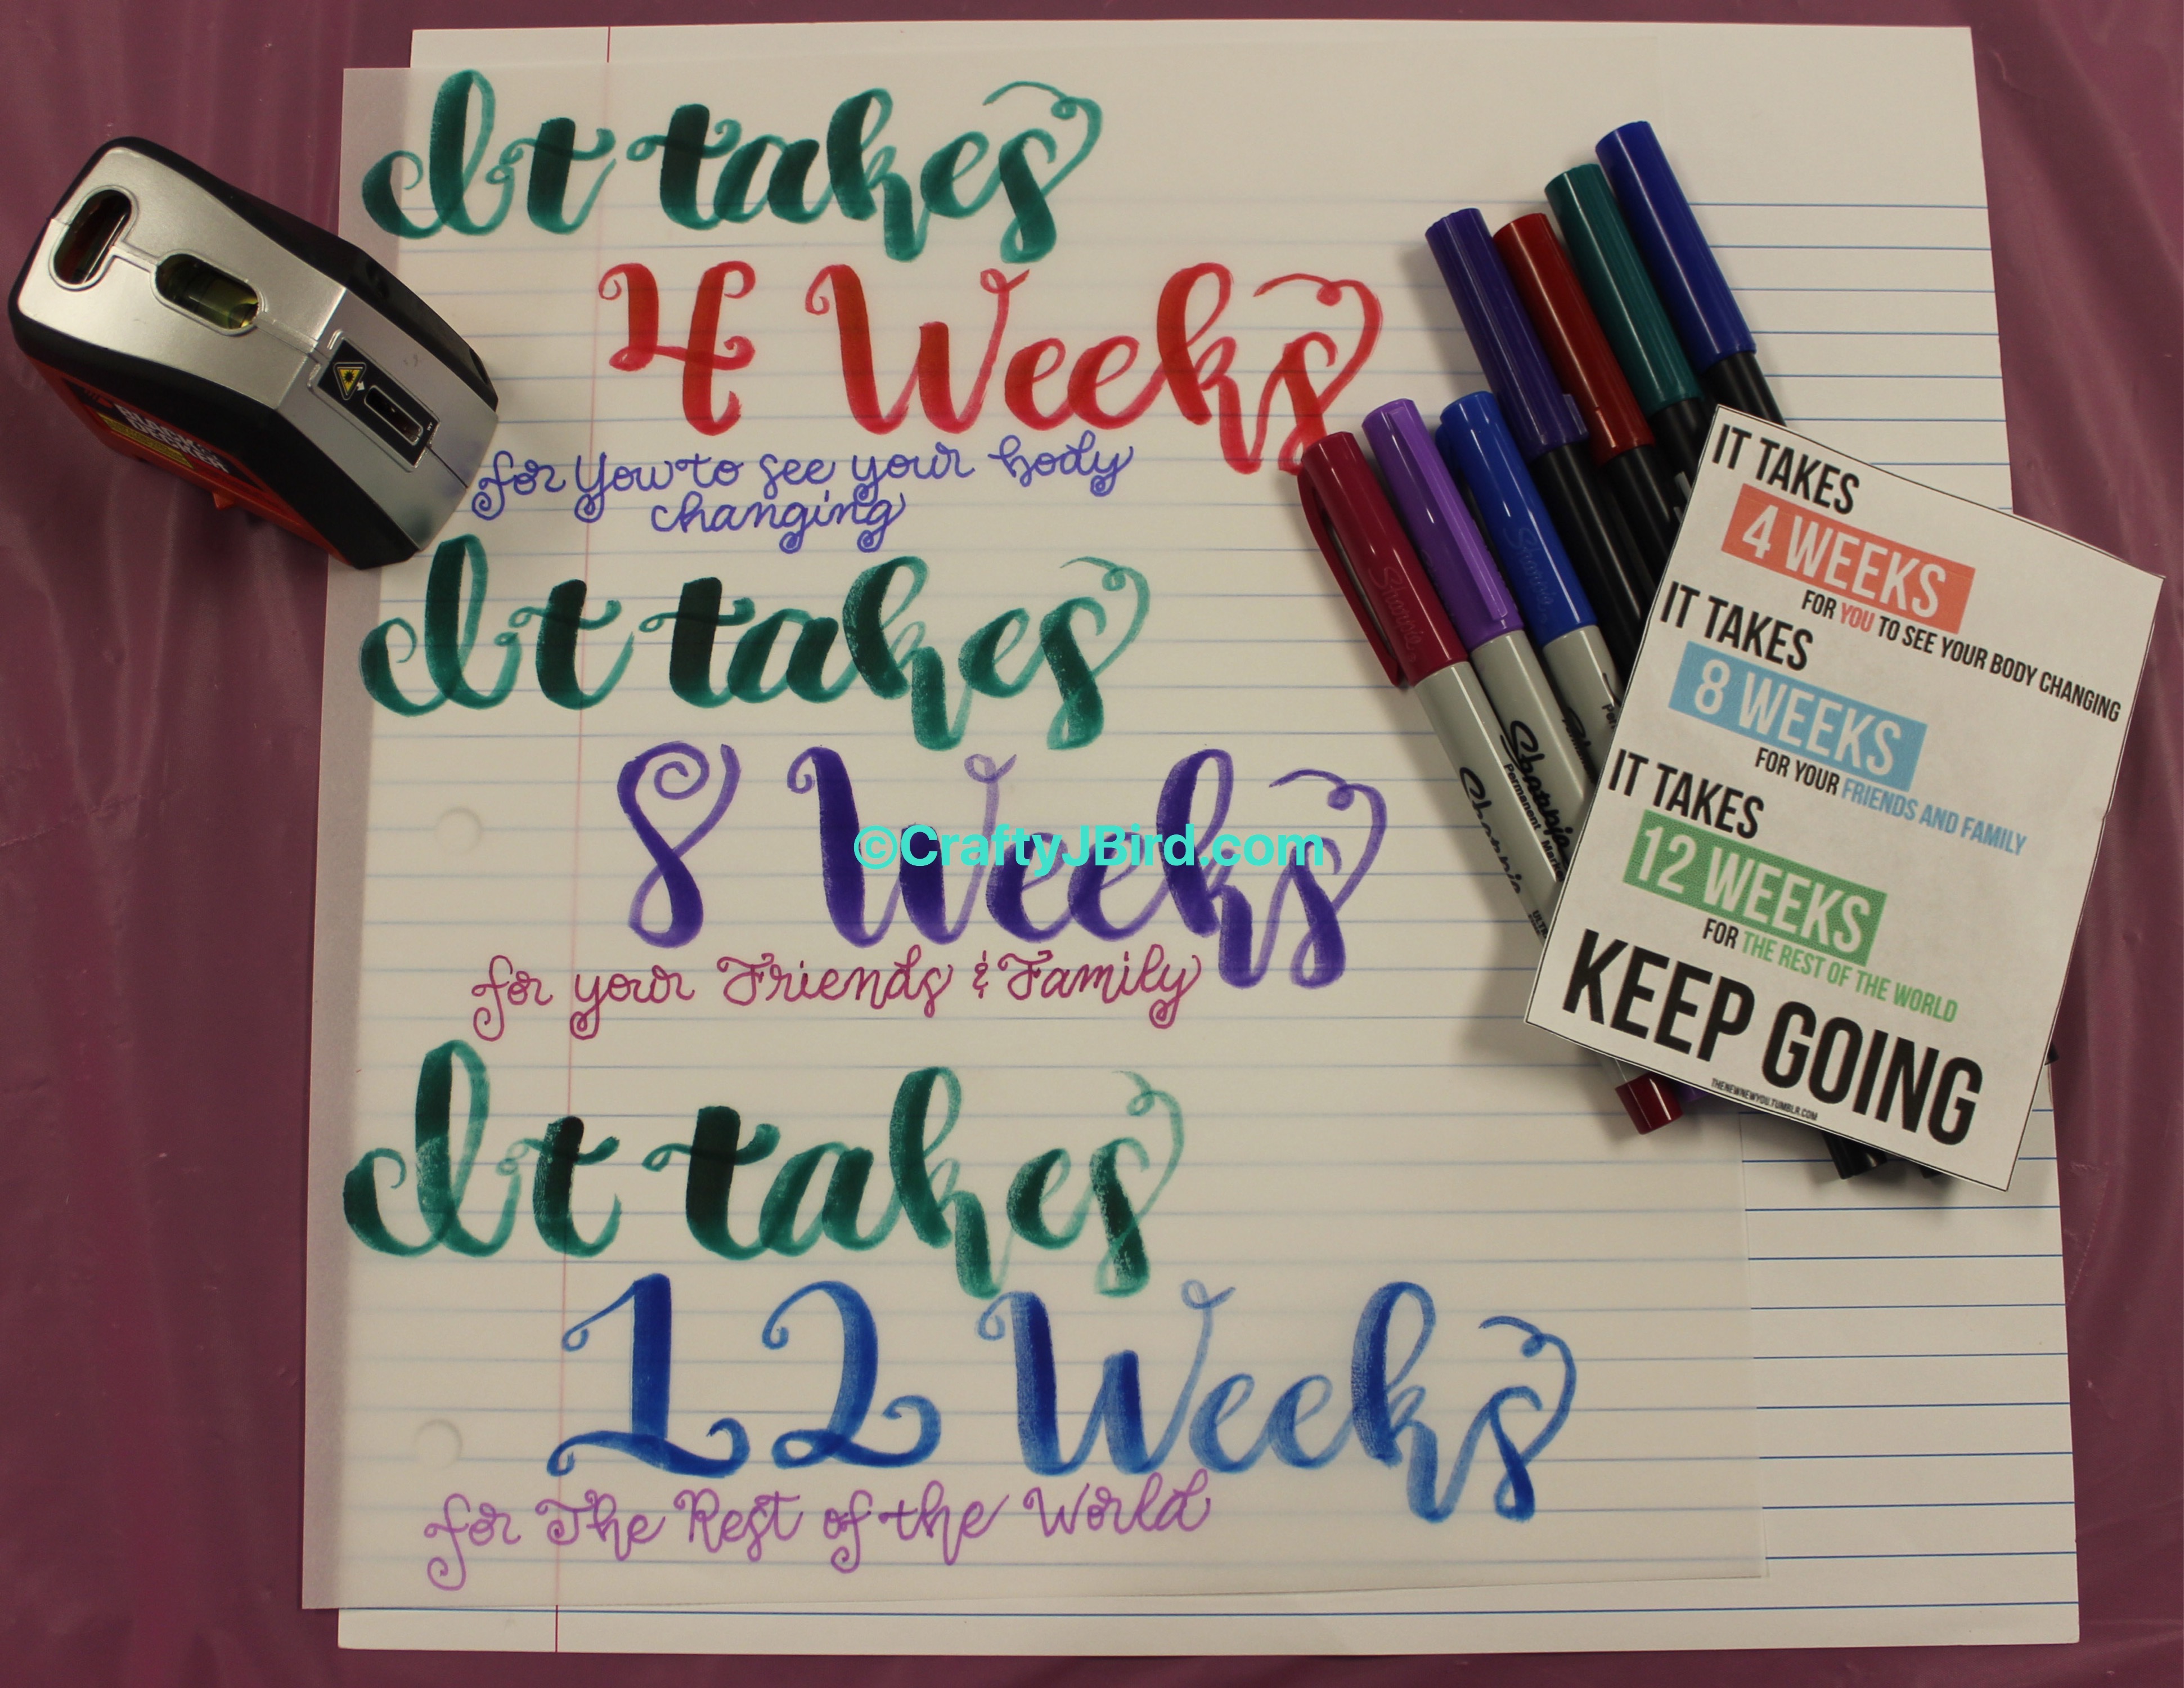 It takes
4 Weeks
for You to see your body
changing
It takes
8 Weeks
for your Friends & Family
It takes
12 Weeks
for The Rest of the World
©CraftyJBird.com
BLACK+DECKER
Sharpie
Sharpie
Sharpie
Sharpie
Permanent Marker
Sharpie
IT TAKES
4 WEEKS
FOR YOU TO SEE YOUR BODY CHANGING
IT TAKES
8 WEEKS
FOR YOUR FRIENDS AND FAMILY
IT TAKES
12 WEEKS
FOR THE REST OF THE WORLD
KEEP GOING
THENEWNEWYOU.TUMBLR.COM